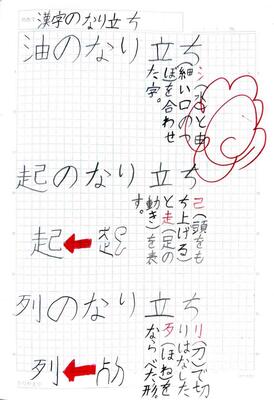 漢字のなり立ち
油のなり立ち
氵(水)と由
(細い口のつ
ぼ)を合わせ
た字。
起のなり立ち
己(頭をも
ち上げる)
と走(足の
動き)を表
す。
起
列のなり立ち
刂(刀)で切
りはなした
歹(ほね)を
ならべた形。
列